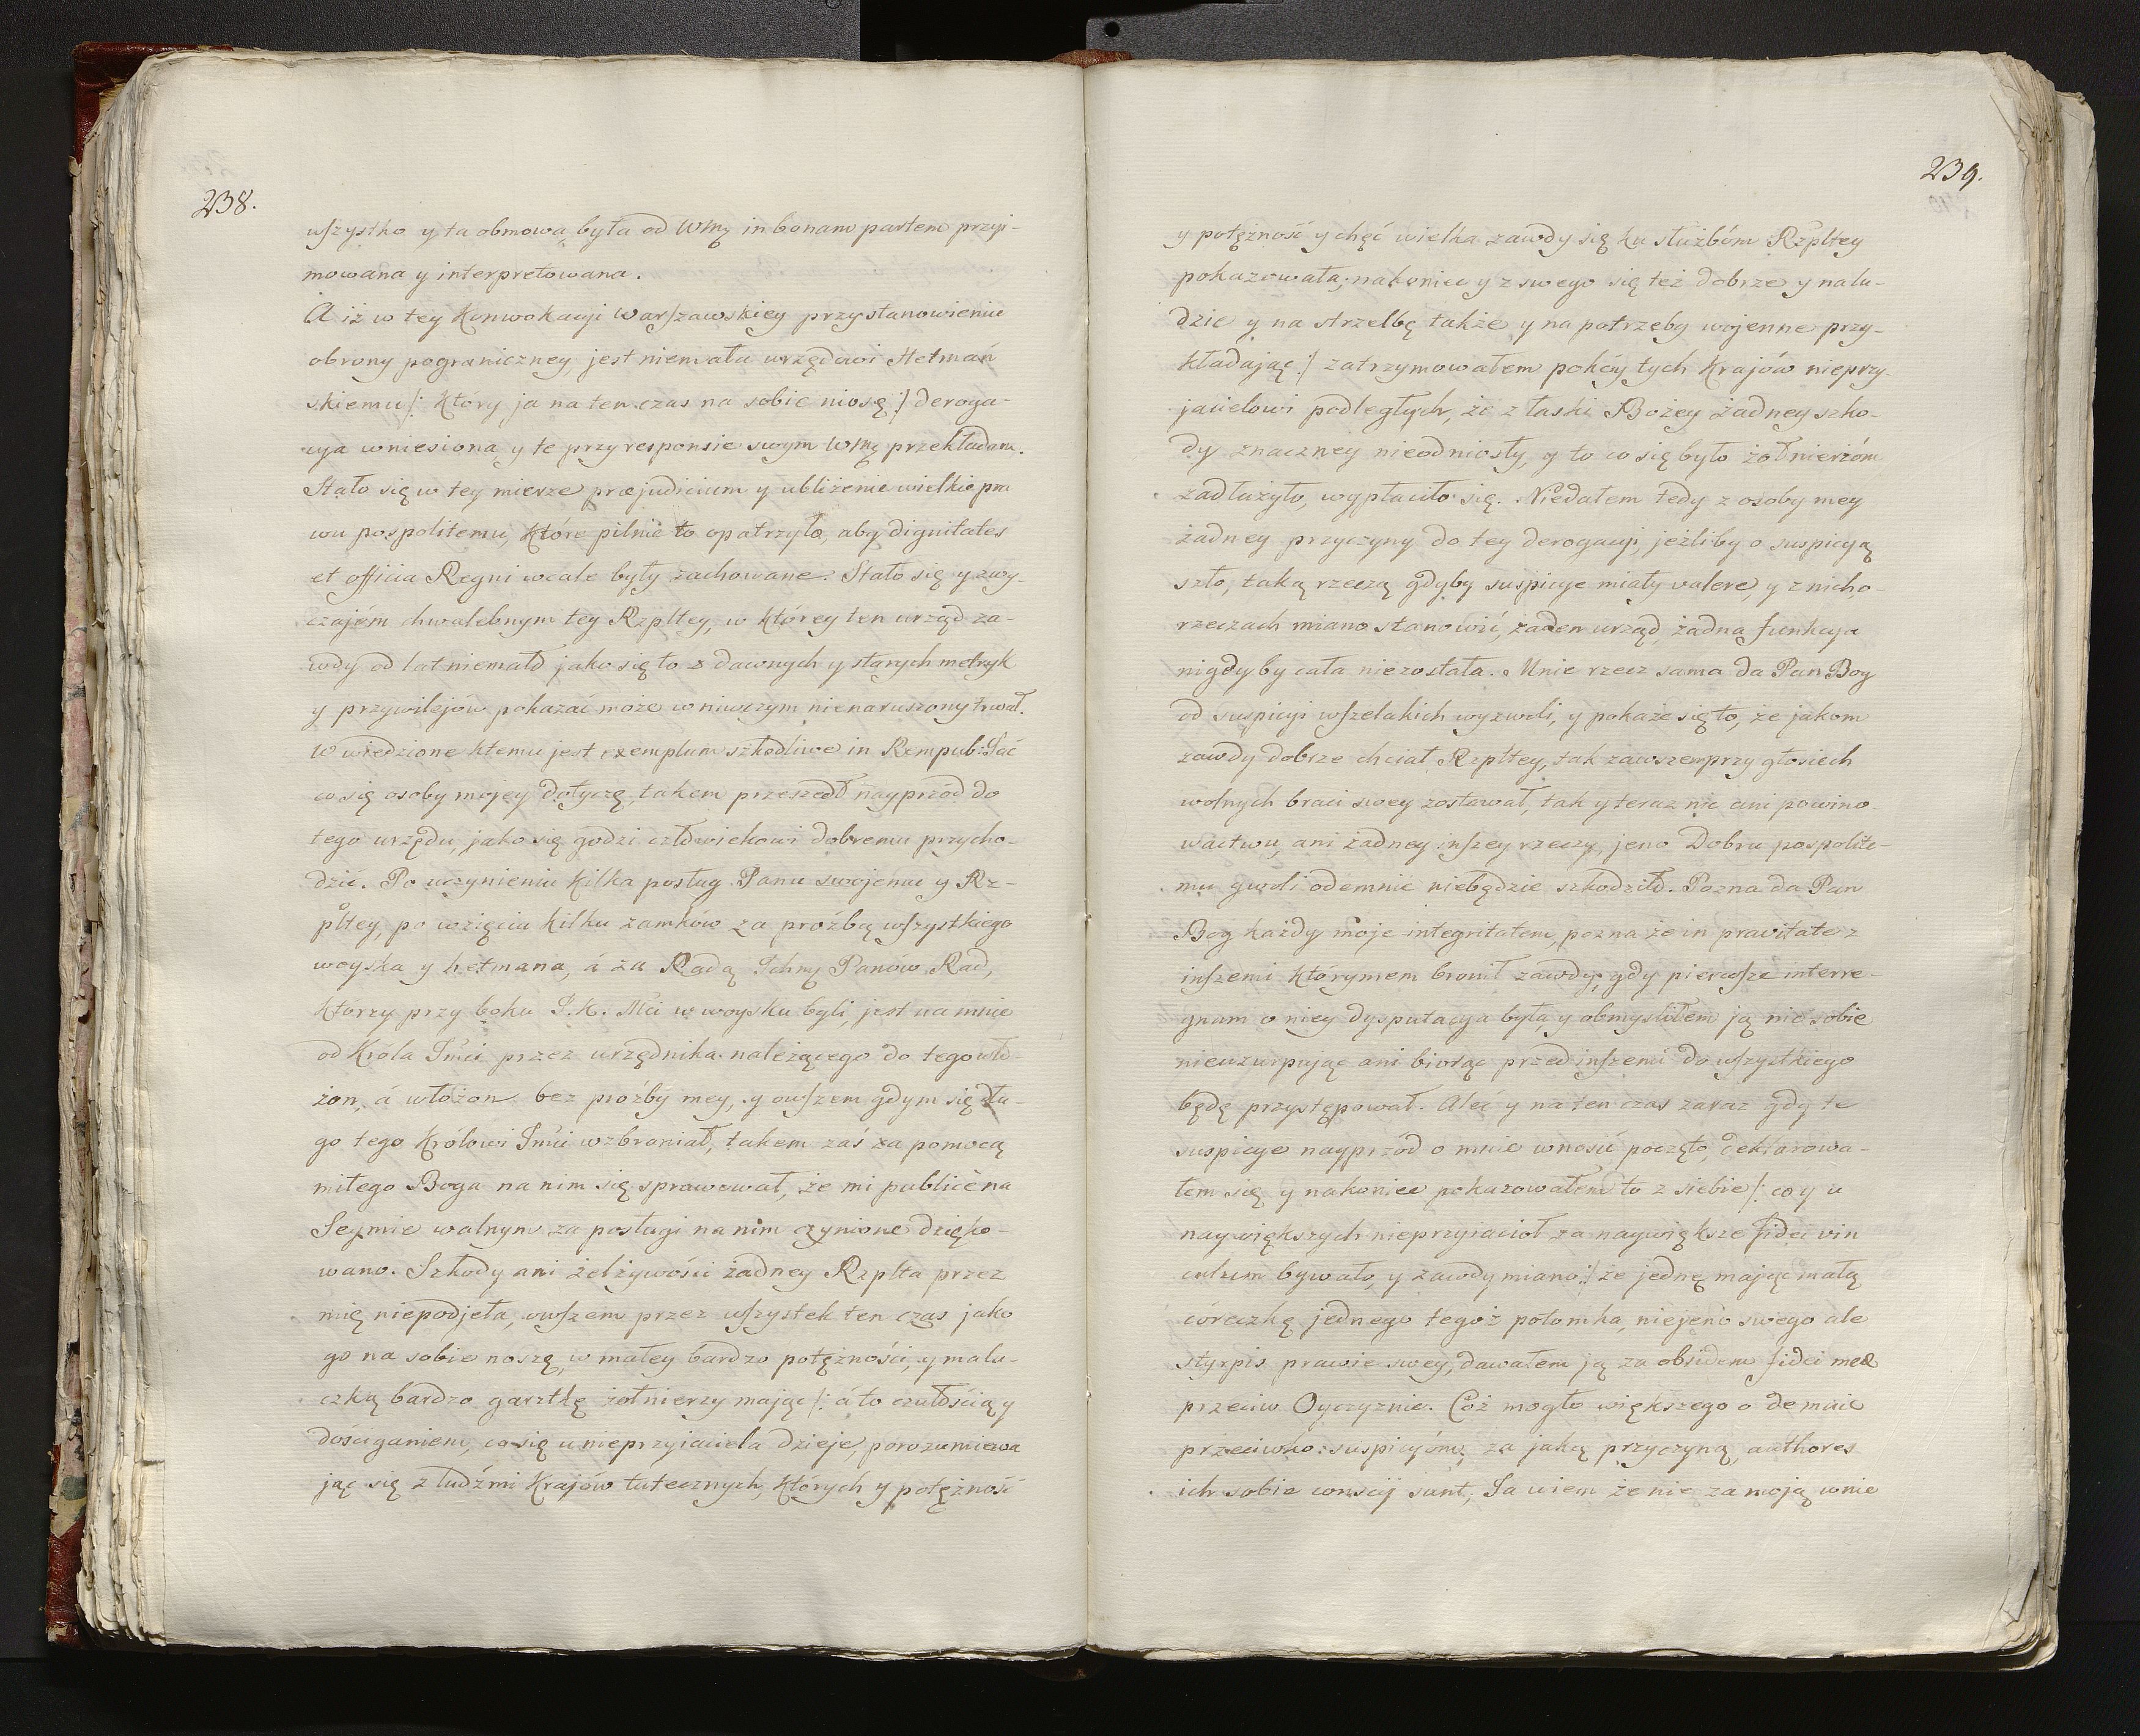 238.
wszystko y ta obmowa była od Wmę in bonam partem przyi-
mowana y interpretowana.
A iż w tey Konwokacyi Warszawskiey przy stanowieniu
obrony pograniczney, jest niemała urzędowi Hetmań
skiemu /: który ja na ten czas na sobie niosę :/ deroga-
cya wniesiona, y te przy responsie swym Wmę przekładam.
Stało się w tey mierze præjudicium y ubliżenie wielkie pra
wu pospolitemu, które pilnie to opatrzyło, aby dignitates
et officia Regni wcale były zachowane. Stało się y zwy-
czajóm chwalebnym tey Rzpltey, w którey ten urząd za-
wdy od lat niemało jako się to z dawnych y starych metryk
y przywilejów pokazać może w niwczym nienaruszony trwał.
W wiedzione ktemu jest exemplum szkodliwe in Rempub: Jać
co się osoby mojey dotyczę, takem przeszedł nayprzód do
tego urzędu, jako się godzi człowiekowi dobremu przycho-
dzić. Po uczynieniu kilka posług Panu swojemu y Rz-
pltey, po wzięciu kilku zamków za proźbą wszystkiego
woyska y hetmana, á za Radą Ichmę Panów Rad,
którzy przy boku J. K. Mći w woysku byli, jest na mnie
od Króla Jmći przez urzędnika należącego do tego wło-
żon, á włożon bez proźby mey, y owszem gdym się dłu-
go tego Królowi Jmći wzbraniał, takem zaś za pomocą
miłego Boga na nim się sprawował, że mi publicè na
Seymie walnym za posługi na nim czynione dzięko-
wano. Szkody ani żelżywości żadney Rzplta przez
mię niepodjęła, owszem przez wszystek ten czas jako
go na sobie noszę, w małey bardzo potężności, y malu-
czką bardzo garztkę żołnierzy mając /: á to czułością y
dościganiem, co się u nieprzyiaciela dzieje, porozumiewa
jąc się z ludźmi Krajów tutecznych, których y potężność
239.
y potężność y chęć wielka zawdy się ku służbóm Rzpltey
pokazowała; nakoniec y z swego się też dobrze y na lu-
dzie y na strzelbę także y na potrzeby wojenne przy-
kładając :/ zatrzymowałem pokóy tych Krajów nieprzy-
jacielowi podległych, że z łaski Bożey żadney szko-
dy znaczney nieodniosły, y to co się było żołnierzóm
zadłużyło, wypłaciło się. Niedałem tedy z osoby mey
żadney przyczyny do tey derogacyi, jeżliby o suspicyą
szło, taką rzeczą gdyby suspicye miały valere, y z nich o
rzeczach miano stanowić, żaden urząd, żadna funkcya
nigdyby cała niezostała. Mnie rzecz sama da Pan Bog
od suspicyi wszelakich wyzwoli, y pokaże się to, że jakom
zawdy dobrze chciał Rzpltey, tak zawszem przy głosiech
wolnych braci swey zostawał, tak y teraz nic ani powino-
wactwu, ani żadney inszey rzeczy, jeno Dobru pospolite-
mu gwoli odemnie niebędzie szkodziło. Pozna da Pan
Bog każdy moje integritatem, pozna że in pravitate z
inszemi którymem bronił zawdy, gdy pierwsze interre-
gnum o niey dysputacya była, y obmyśliłem ją nie sobie
nieuzurpując ani biorąc przed inszemi do wszystkiego
będę przystępował. Aleć y na ten czas zaraz gdy te
suspicye nayprzód o mnie wnosić poczęto, deklarowa-
łem się y nakoniec pokazowałem to z siebie /: co y u
naywiększych nieprzyiaciół za naywiększe fidei vin
culum bywało, y zawdy miano :/ że jednę mając małą
córeczkę jednego tegoż potomka, niejeno swego ale
styrpis prawie swey, dawałem ją za obsidem fidei meæ
przeciw Oyczyznie. Cóż mogło większego odemnie
przeciwko suspicyóm, za jaką przyczyną authores
ich sobie conscij sunt, Ja wiem że nie za moją winę